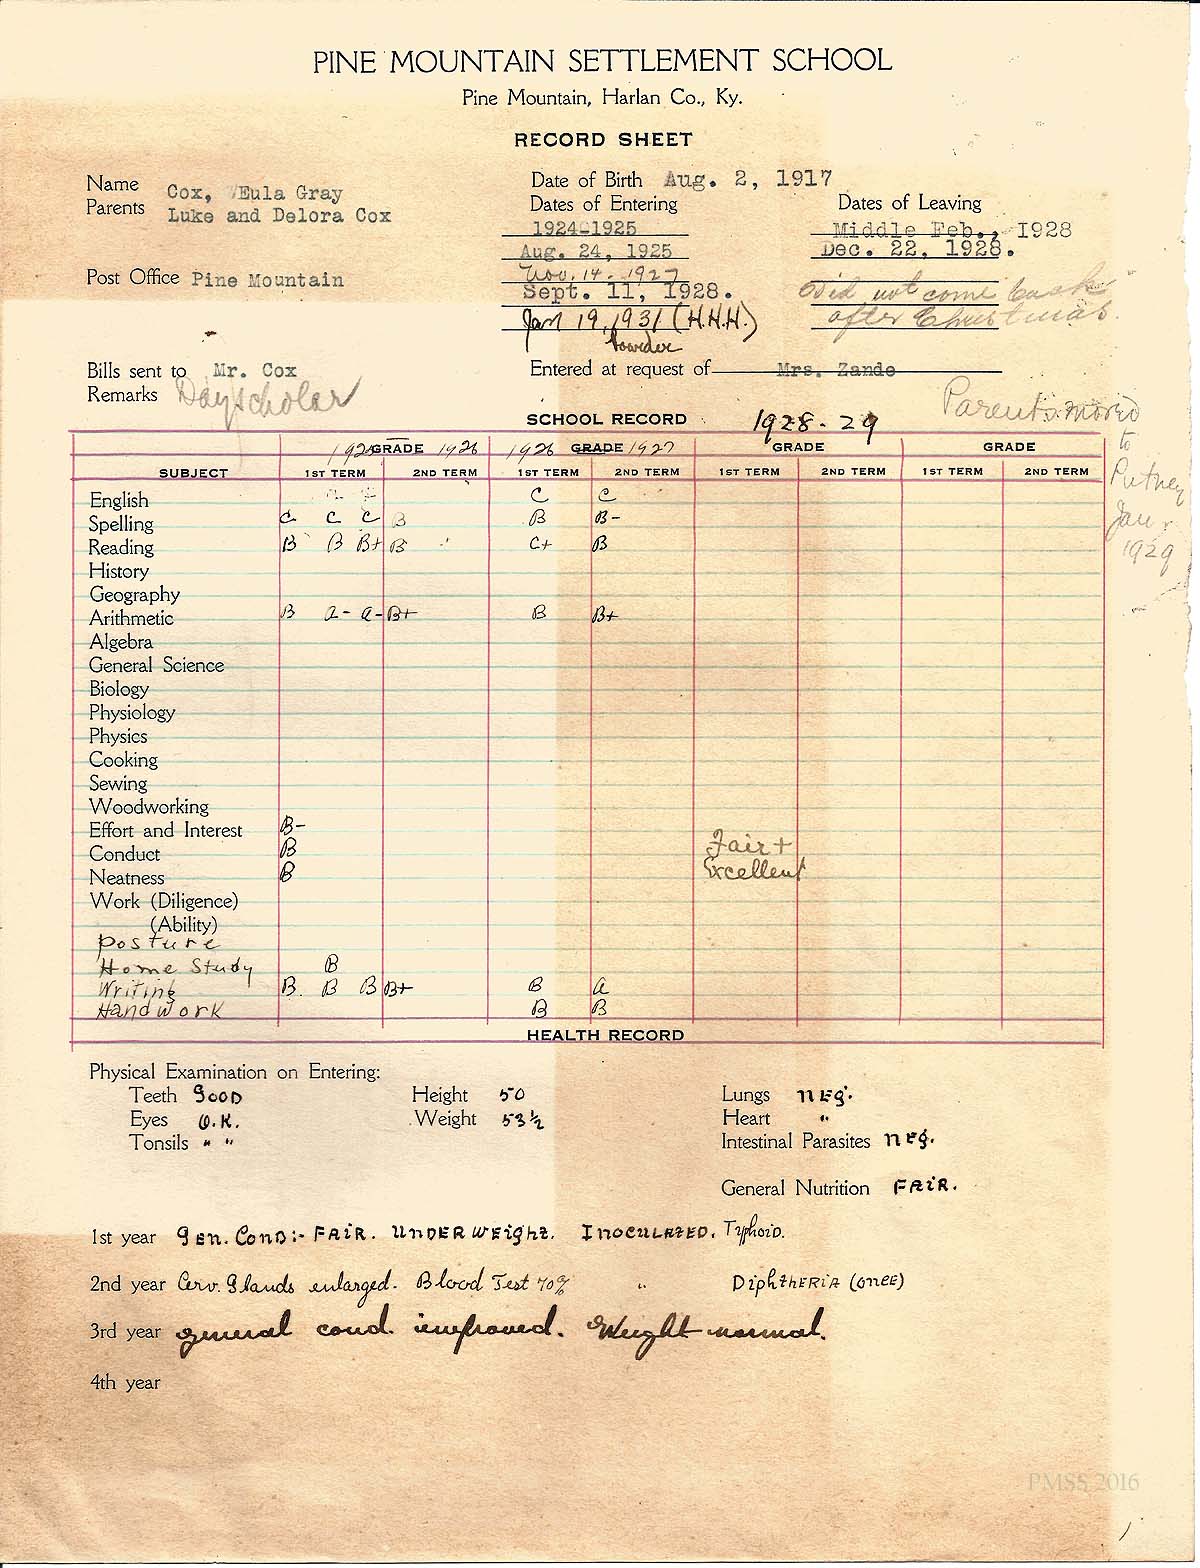 PINE MOUNTAIN SETTLEMENT SCHOOL
Pine Mountain, Harlan Co., Ky.
RECORD SHEET
Name Cox, Eula Gray
Parents Luke and Delora Cox
Post Office Pine Mountain
Date of Birth Aug. 2, 1917
Dates of Entering
1924-1925
Aug. 24, 1925
Nov. 14 - 1927
Sept. 11, 1928.
Jan 19, 1931 (H.H.H.)
boarder
Dates of Leaving
Middle Feb., 1928
Dec. 22, 1928.
Did not come back
after Christmas.
Bills sent to Mr. Cox
Remarks Dayscholar
Entered at request of Mrs. Zande
Parents moved
to
Putney
Jan.
1929
SCHOOL RECORD 1928-29
1925 GRADE 1926 1926 GRADE 1927 GRADE GRADE
SUBJECT 1ST TERM 2ND TERM 1ST TERM 2ND TERM 1ST TERM 2ND TERM 1ST TERM 2ND TERM
English C C
Spelling C C C B B B-
Reading B B B+ B C+ B
History
Geography
Arithmetic B a- a- B+ B B+
Algebra
General Science
Biology
Physiology
Physics
Cooking
Sewing
Woodworking
Effort and Interest B-
Conduct B Fair+
Neatness B Excellent
Work (Diligence)
(Ability)
Posture
Home Study B
Writing B B B B+ B a
Handwork B B
HEALTH RECORD
Physical Examination on Entering:
Teeth GOOD Height 50 Lungs NEG.
Eyes O.K. Weight 53½ Heart "
Tonsils " " Intestinal Parasites NEG.
General Nutrition FAIR.
1st year GEN. COND:- FAIR. UNDERWEIGHT. INOCULATED. TYPHOID.
2nd year Cerv. Glands enlarged. Blood Test 70% " DIPHTHERIA (ONCE)
3rd year general cond. improved. Weight normal.
4th year
PMSS 2016